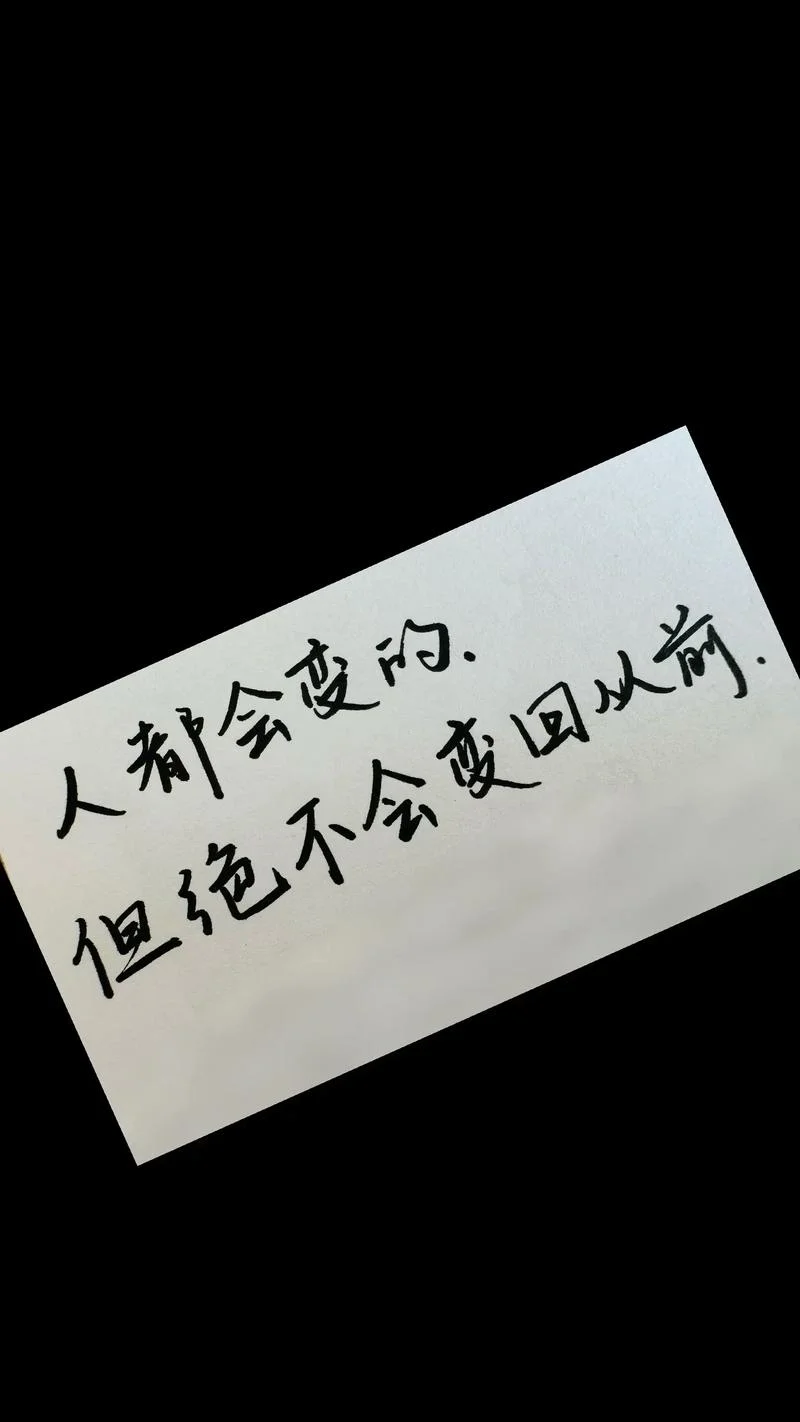 人都会变的.
但绝不会变回从前.